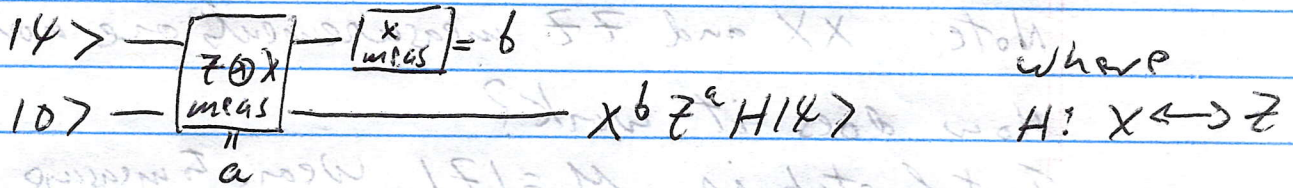 |ψ> — Z⊗X meas — X meas = b
|0> — X^b Z^a H|ψ>
a
where
H: X ↔ Z